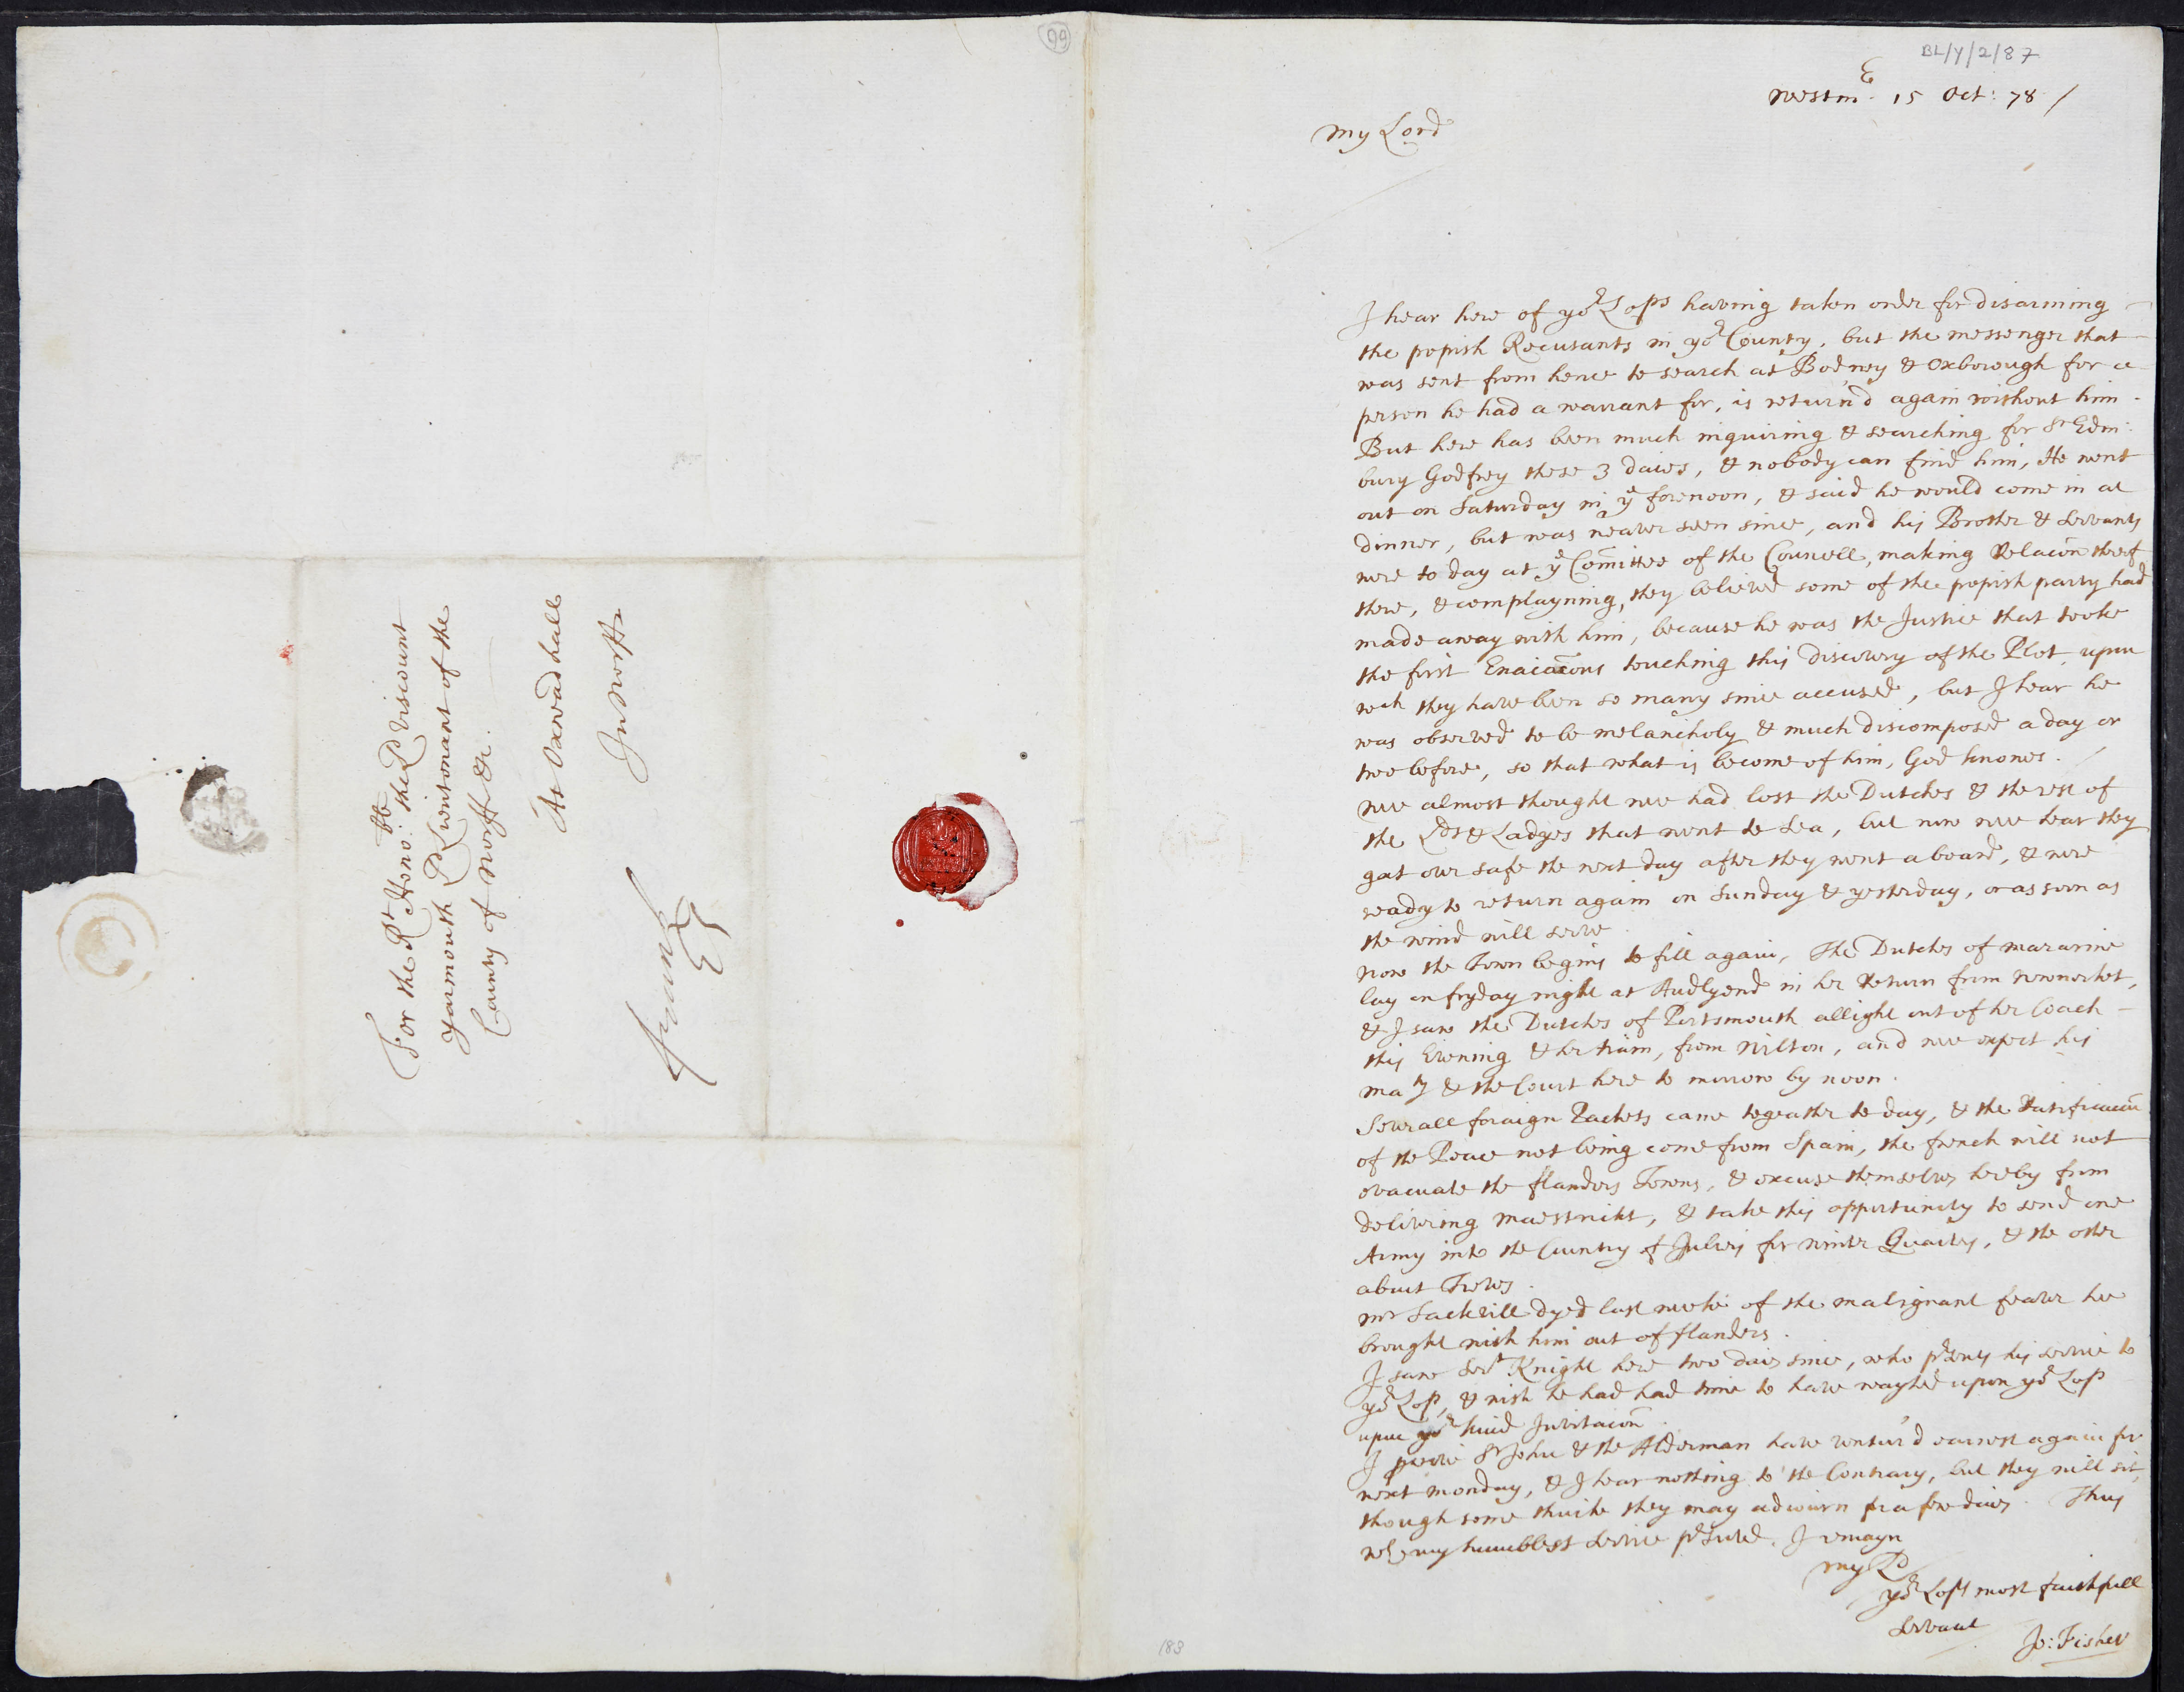 99
BL/Y/2/87
Westmr. 15 Oct: 78 /
My Lord
I hear here of yor Lops having taken order for disarming
the popish Recusants in yor Country, but the messenger that
was sent from hence to search at Bodney & Oxborough for a
person he had a warrant for, is return'd again without him.
But here has been much inquiring & searching for Sr Edm:
bury Godfrey these 3 daies, & nobody can find him, He went
out on Saturday in ye forenoon, & said he would come in at
dinner, but was neaver seen since, and his Brother & Servants
were to day at ye Comittee of the Councell, making Relacon therof
there, & complayning, they believed some of the popish party had
made away with him, because he was the Justice that tooke
the first touching this discovery of the Plot, upon
wch they have been so many since accused, but I hear he
was observed to be melancholy & much discomposed a day or
two before, so that what is become of him, God knowes.
wee almost thought wee had lost the Dutches & the rest of
the Lds & Ladyes that went to Sea, but now wee hear they
gat over safe the next day after they went aboard, & were
ready to return again on Sunday & yesterday, or as soon as
the wind will serve.
Now the Town begins to fill again, The Dutches of Mazarine
lay on fryday night at Audlyend in her Return from Newmarket,
& I saw the Dutches of Portsmouth allight out of her Coach
this Evening & her train, from Wilton, and wee expect his
Maty & the Court here to morrow by noon.
Severall foraign Packets came togeather to day, & the Ratificacon
of the Peace not being come from Spain, the french will not
evacuate the flanders Townes, & excuse themselves hereby from
delivering Maestricht, & take this oppertunity to send one
Army into the Cuntry of Juliers for winter Quarters, & the other
about Treves.
Mr Sackvill dyed last weeke of the malignant feaver hee
brought with him out of flanders.
I saw Serjt Knight here two daies since, who prsents his service to
yor Lop, & wish he had had time to have wayted upon yor Lop
upon yor kind Invitacon.
I Sr John & the Alderman have ventur'd earnest again for
next monday, & I hear nothing to the Contrary, but they will sit,
though some thinke they may adjourn for a few daies. Thus
wth my humblest service prsented, I remayn
My Ld
yor Lops most faithfull
Servant
Jo: Fisher
183
For the Rt Honoble: the Ld Viscount
Yarmouth Ld Lieutenant of the
County of Norff &c.
At Oxnead hall
In Norff
frank